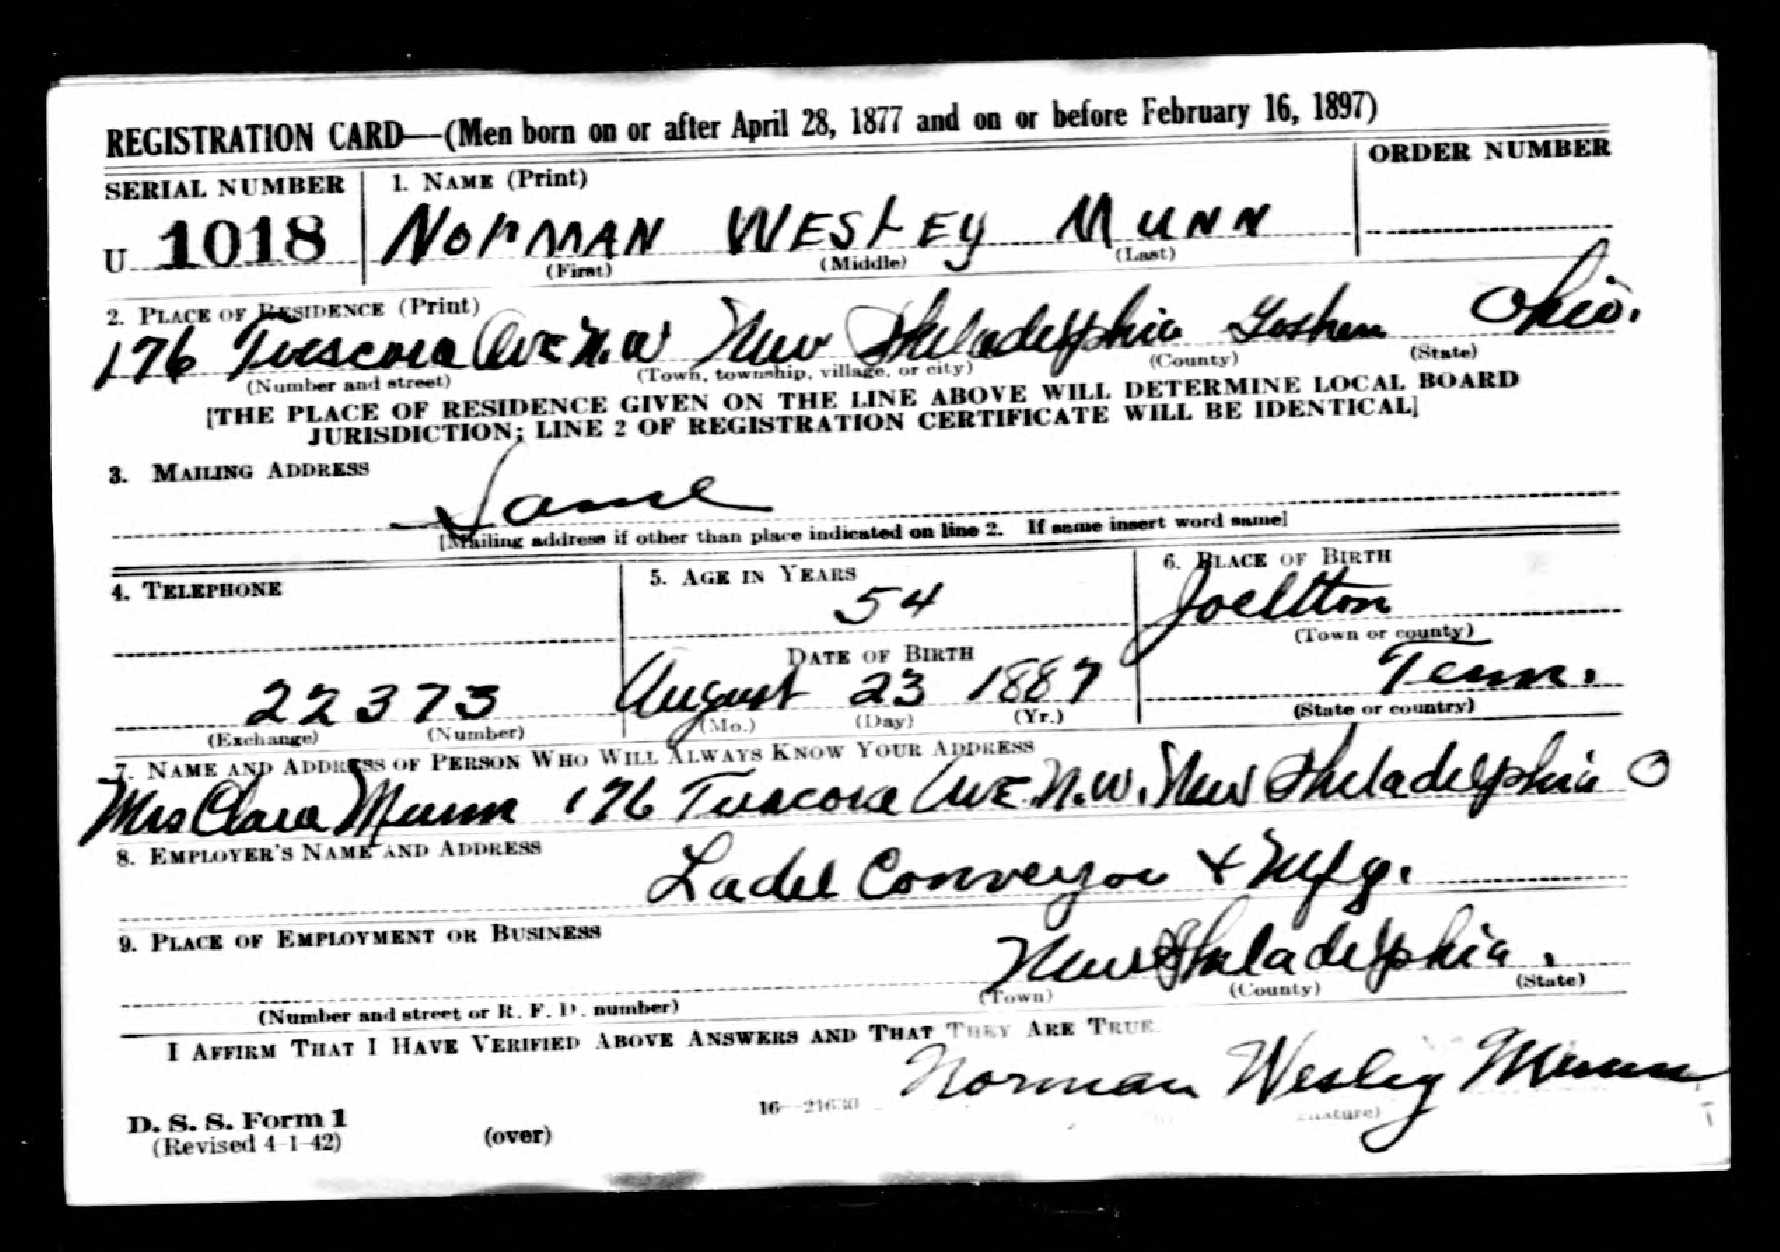 REGISTRATION CARD—(Men born on or after April 28, 1877 and on or before February 16, 1897)
SERIAL NUMBER
1. NAME (Print)
ORDER NUMBER
U 1018
NORMAN WESLEY MUNN
(First) (Middle) (Last)
2. PLACE OF RESIDENCE (Print)
176 Tuscora Ave N.W New Philadelphia Goshen Ohio.
(Number and street) (Town, township, village, or city) (County) (State)
[THE PLACE OF RESIDENCE GIVEN ON THE LINE ABOVE WILL DETERMINE LOCAL BOARD
JURISDICTION; LINE 2 OF REGISTRATION CERTIFICATE WILL BE IDENTICAL]
3. MAILING ADDRESS
Same
[Mailing address if other than place indicated on line 2. If same insert word same]
4. TELEPHONE
5. AGE IN YEARS
6. PLACE OF BIRTH
54
Joellton
(Town or county)
DATE OF BIRTH
22373
August 23 1887
Tenn.
(Exchange) (Number)
(Mo.) (Day) (Yr.)
(State or country)
7. NAME AND ADDRESS OF PERSON WHO WILL ALWAYS KNOW YOUR ADDRESS
Mrs Clara Munn 176 Tuscora Ave N.W. New Philadelphia O
8. EMPLOYER'S NAME AND ADDRESS
Ladel Conveyor + Mfg.
9. PLACE OF EMPLOYMENT OR BUSINESS
New Philadelphia.
(Number and street or R. F. D. number) (Town) (County) (State)
I AFFIRM THAT I HAVE VERIFIED ABOVE ANSWERS AND THAT THEY ARE TRUE.
Norman Wesley Munn
D. S. S. Form 1
(Revised 4-1-42)
(over)
16—21630